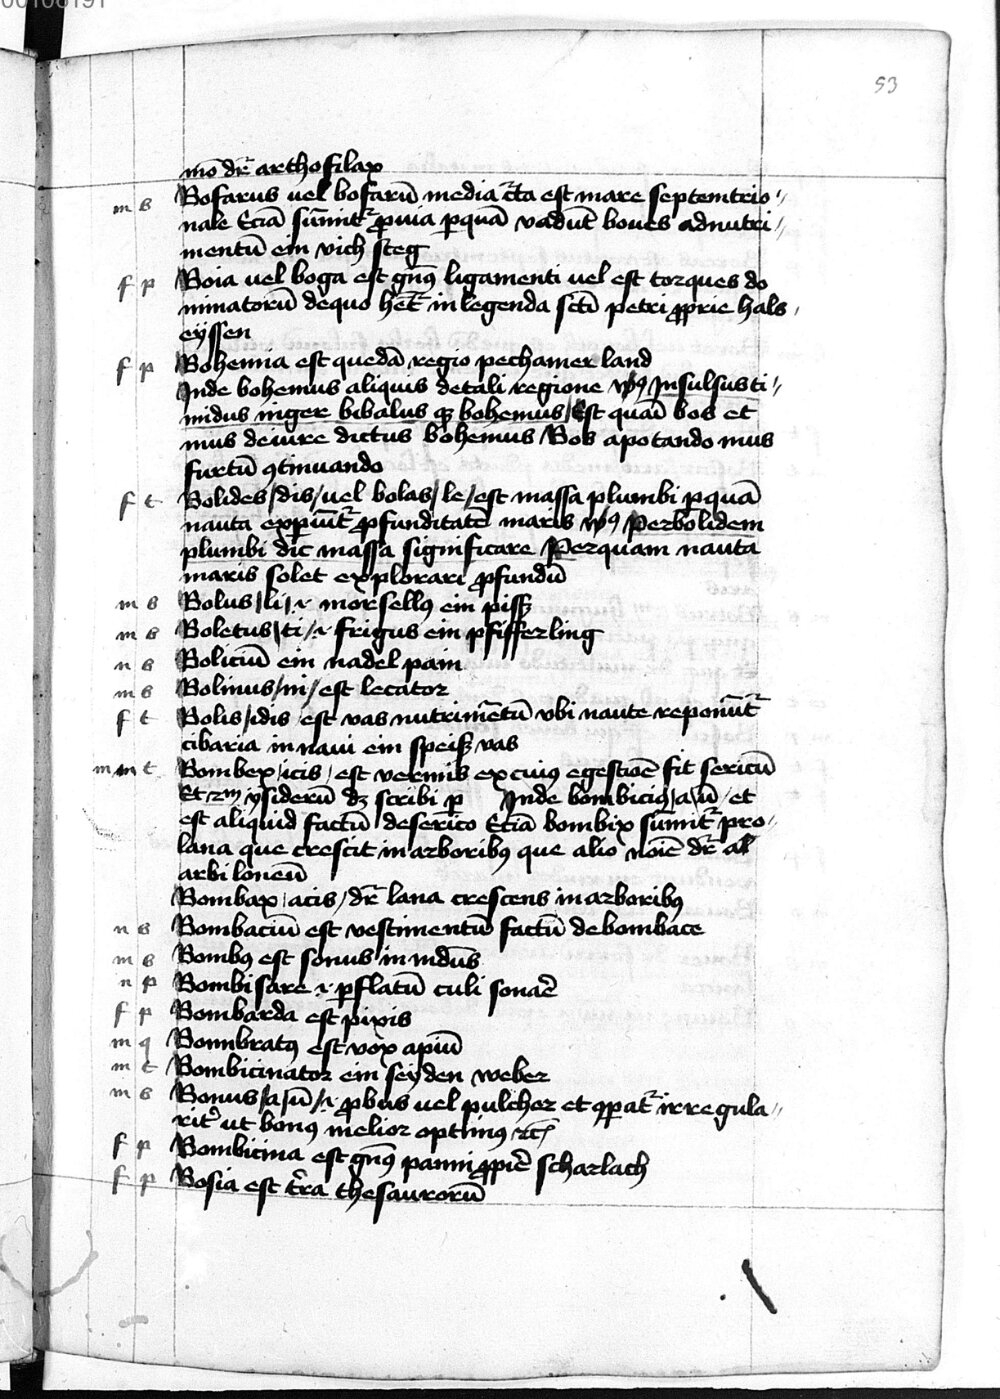 00106191
53
mo dr̄ arthofilax
m s Bofarus uel bofarū media c̄ta est mare septemtrio〃
nale Eciā sūmit᷑ p̱ uia p̱quā vadūt boues ad nutri〃
mentū ein vich steg
f p Boia uel boga est gn̄s ligamenti uel est torques do
minatorū de quo het᷑ in legenda scti petri p̱prie hals
eyssen
f p Bohemia est quedā regio pechamer land
Inde bohemus aliquis de tali regione vs̄ꝰ Insulsus ti〃
midus niger bibalus qꝫ bohemus Est quāi bos et
mus de iure dictus bohemus Bos a potando mus
furtū ꝯtinuando
f t Bolides /dis/ uel bolas /le/ est massa plumbi p̱quā
nauta exp̱iūt᷑ p̱funditatē maris vs̄ꝰ Per bolidem
plumbi dic massa significare Per quam nauta
maris solet explorari p̱fundū
m s Bolus /li/ .i. morsellꝰ ein piſſꝫ
m s Boletus /ti/ .i. frigus ein pfifferling
n s Boliciū ein nadel pain
m s Bolinus /ni/ est lecator
f t Bolis /idis/ est vas nutrimētū vbi naute reponūt᷑
cibaria in naui ein speiſꝫ vas
m m t Bombex /icis/ est vermis ex cuiꝰ egestiōe fit sericū
Et 2m ysiderū dꝫ scribi p Inde bombiciꝰ /a/ū/ et
est aliquid factū de serico Eciā bombix sūmit᷑ pro〃
lana que crescit in arboribꝰ que alio noīe dr̄ al
arbi loneū
Bombax /acis/ dr̄ lana crescens in arboribꝰ
n s Bombaciū est vestimentū factū de bombace
m s Bombꝰ est sonus in mdūs
n p Bombisare .i. p̱ flatū culi sonarē
f p Bombarda est pixis
m q Bombratꝰ est vox apiū
m t Bombicinator ein seyden weber
m s Bonus /a/ū/ .i. p̱bus uel pulcher et ꝯp̱at᷑ irregula〃
rit᷑ ut bonꝰ melior optimꝰ ꝛc̄
f p Bombicina est gn̄s panni p̱piē scharlach
f p Bosia est t̄ra thesaurorū